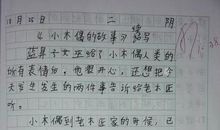 10月25日 二 阴
4.小木偶的故事续写
蓝鼻子女巫给了小木偶人类的
所有表情后，他很开心，还想把今
天发生的两件事告诉给老木匠
听。
小木偶到老木匠家的时候，已